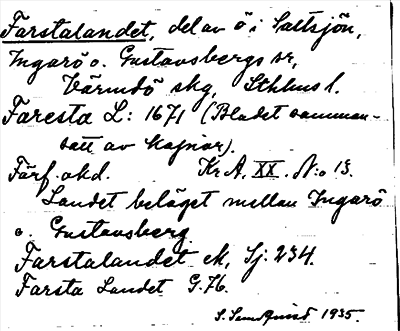 Farstalandet, del av ö i Saltsjön,
Ingarö o. Gustavsbergs sr,
Värmdö skg, Sthlms l.
Faresta L: 1671 (Bladet samman-
satt av kopior).
Förf. okd. Kr.A. XX. N:o 13.
Landet beläget mellan Ingarö
o. Gustavsberg
Farstalandet ek, Sj: 234.
Farsta Landet G.76.
S. Sundquist 1935.